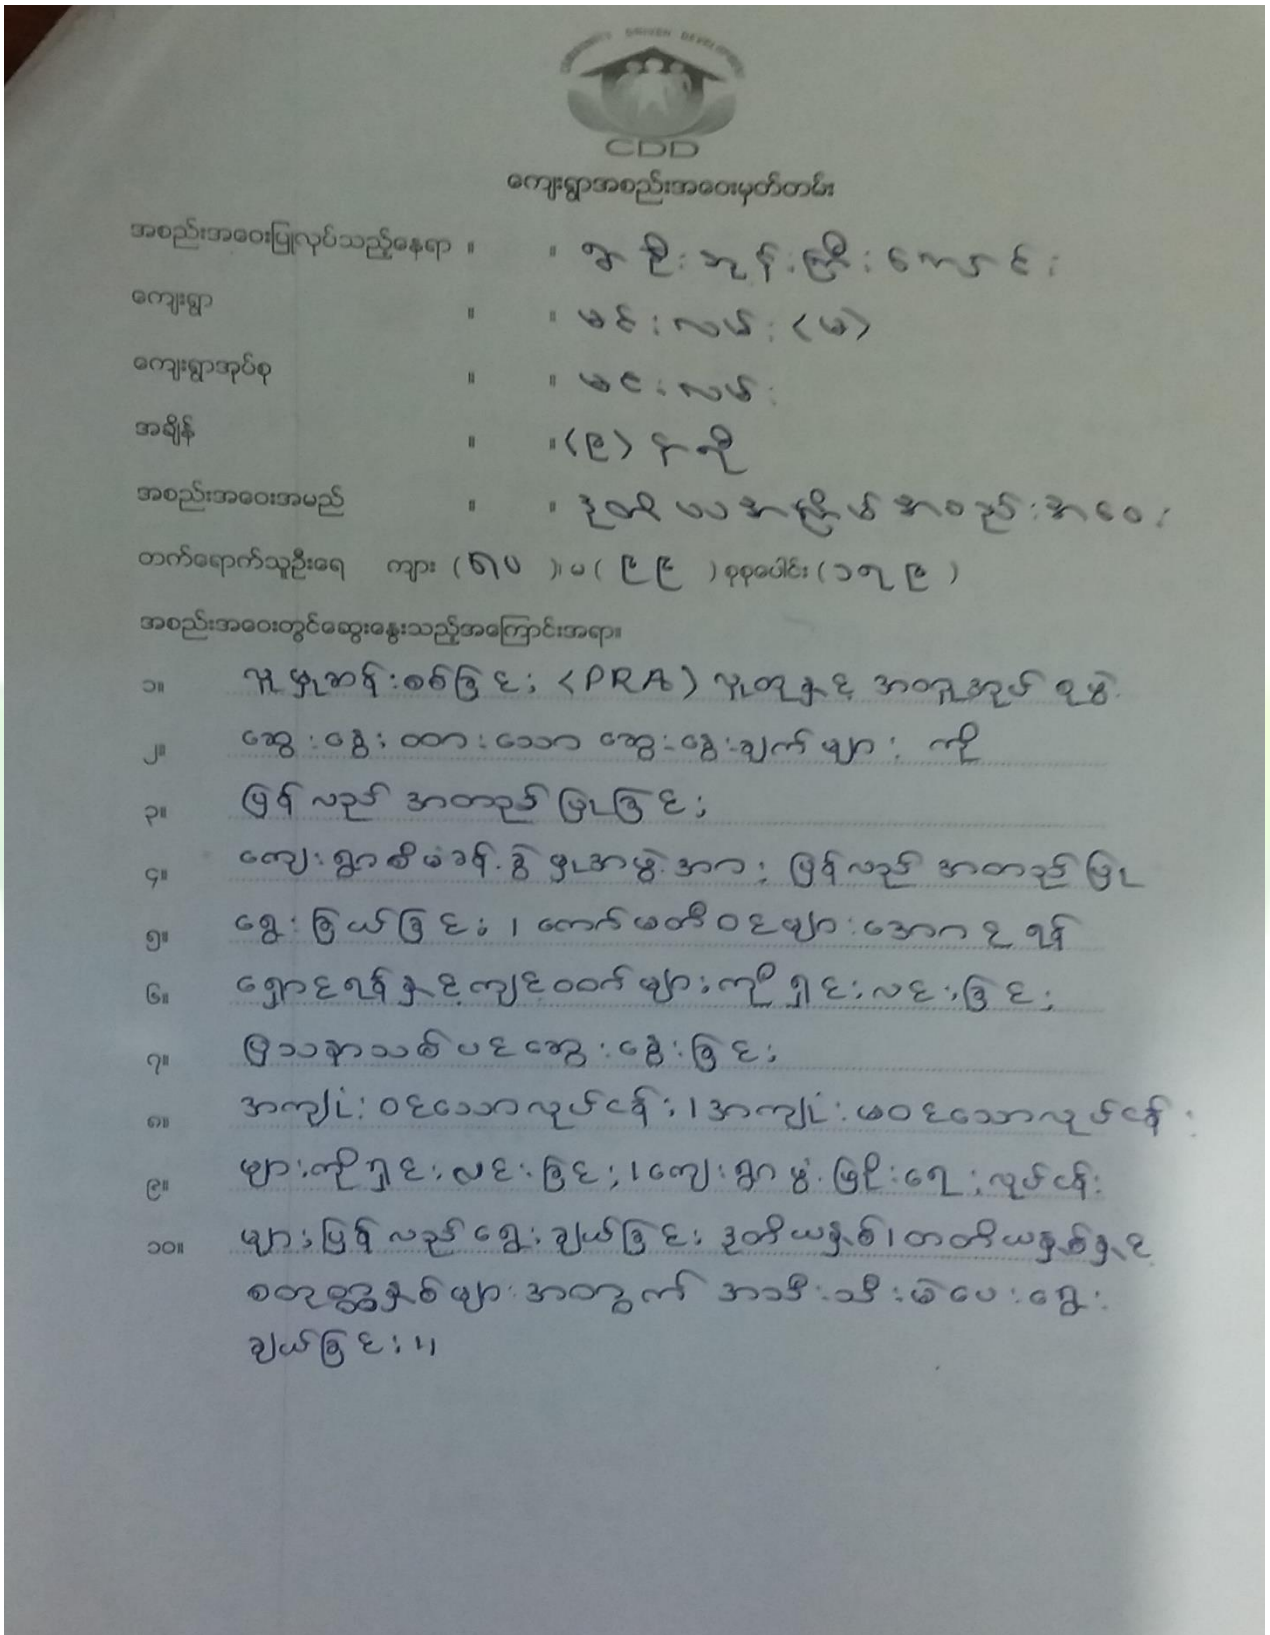 COMMUNITY DRIVEN DEVELOPMENT
CDD
ကျေးရွာအစည်းအဝေးမှတ်တမ်း
အစည်းအဝေးပြုလုပ်သည့်နေရာ ။ ။ ရွာဦးဘုန်းကြီးကျောင်း
ကျေးရွာ ။ ။ မင်းလမ်း (မ)
ကျေးရွာအုပ်စု ။ ။ မင်းလမ်း
အချိန် ။ ။ (၉) နာရီ
အစည်းအဝေးအမည် ။ ။ ဒုတိယအကြိမ်အစည်းအဝေး
တက်ရောက်သူဦးရေ ကျား ( ၈၀ )၊ မ ( ၉၉ ) စုစုပေါင်း ( ၁၇၉ )
အစည်းအဝေးတွင်ဆွေးနွေးသည့်အကြောင်းအရာ။
၁။ လူမှုဆန်းစစ်ခြင်း (PRA) လူထုနှင့် အတူအုပ်စုဖွဲ့
၂။ ဆွေးနွေးထားသော ဆွေးနွေးချက်များကို
၃။ ပြန်လည်အတည်ပြုခြင်း
၄။ ကျေးရွာစီမံခန့်ခွဲမှုအဖွဲ့အား ပြန်လည်အတည်ပြု
၅။ ရွေးခြယ်ခြင်း၊ ကော်မတီဝင်များဆောင်ရန်
၆။ ရှောင်ရန်နှင့်ကျင့်ဝတ်များကိုရှင်းလင်းခြင်း
၇။ ပြဿနာသစ်ပင်ဆွေးနွေးခြင်း
၈။ အကျုံးဝင်သောလုပ်ငန်း၊ အကျုံးမဝင်သောလုပ်ငန်း
၉။ များကိုရှင်းလင်းခြင်း၊ ကျေးရွာဖွံ့ဖြိုးရေးလုပ်ငန်း
၁၀။ များပြန်လည်ရွေးချယ်ခြင်း ဒုတိယနှစ်၊ တတိယနှစ်နှင့်
စတုတ္ထနှစ်များအတွက် အသီးသီးမဲပေးရွေး
ချယ်ခြင်း။